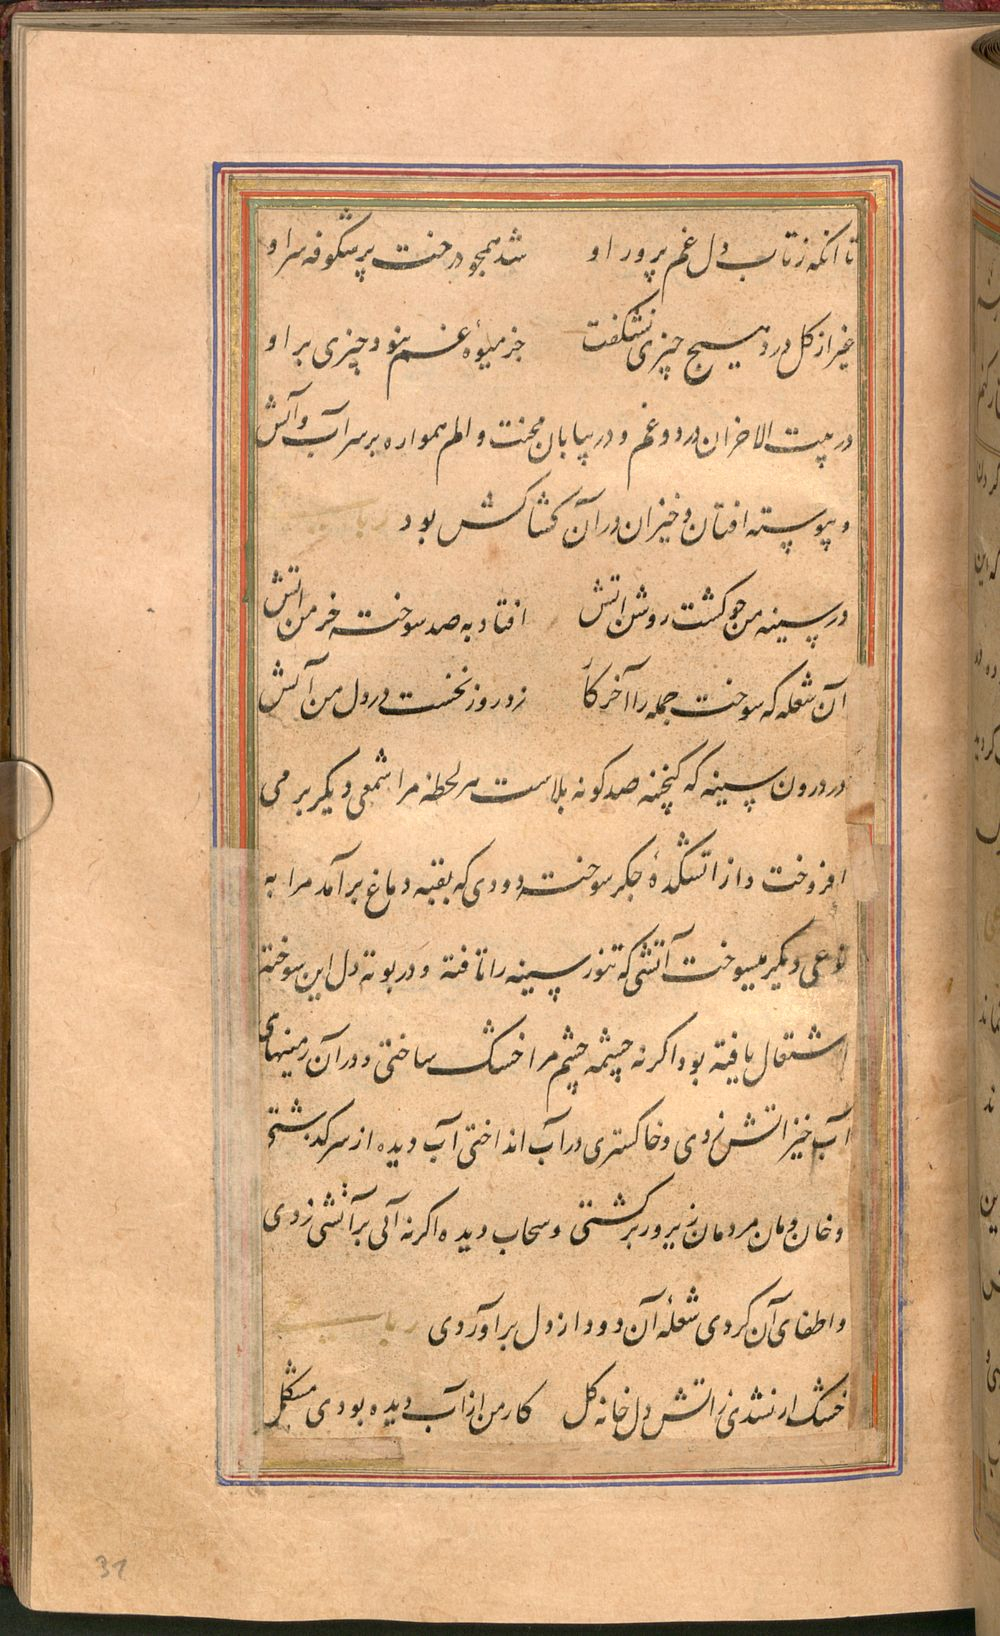 تا انکه ز تاب دل غم پرور او شد همچو درخت پر شکوفه سر او
غیر از کل درد هیچ چیزی نشکفت جز میوهٔ غم نبود چیزی بر او
در بیت الاحزان درد و غم و در بیابان محنت و الم همواره بر سر آب و آتش
و پیوسته افتان و خیزان در آن کشاکش بود رباعی
در سینه من چو کشت روشن اتش افتاد به صد سوخته خرمن اتش
آن شعله که سوخت جمله را آخر کار زد روز نخست در دل من آتش
در درون سینه که کنجینه صد کونه بلاست هر لحظه مرا شمعی دیکر بر می
افروخت و از اتشکدهٔ جکر سوخته دودی که بقبه دماغ برآمد مرا به
نوعی دیکر میسوخت آتشی که تنور سینه را تافته و در بوته دل این سوخته
اشتعال یافته بود اکر نه چشمه چشم مرا خشک ساختی و در آن زمینهای
آب خیز اتش زدی و خاکستری در آب انداختی آب دیده از سر کدشتی
و خان و مان مردمان زیر و زبر کشتی و سحاب دیده اکر نه آبی بر آتشی زدی
و اطفای آن کردی شعلهٔ آن دود از دل برآوردی رباعی
خشک ار نشدی ز اتش دل خانه کل کار من از آب دیده بودی مشکل
31